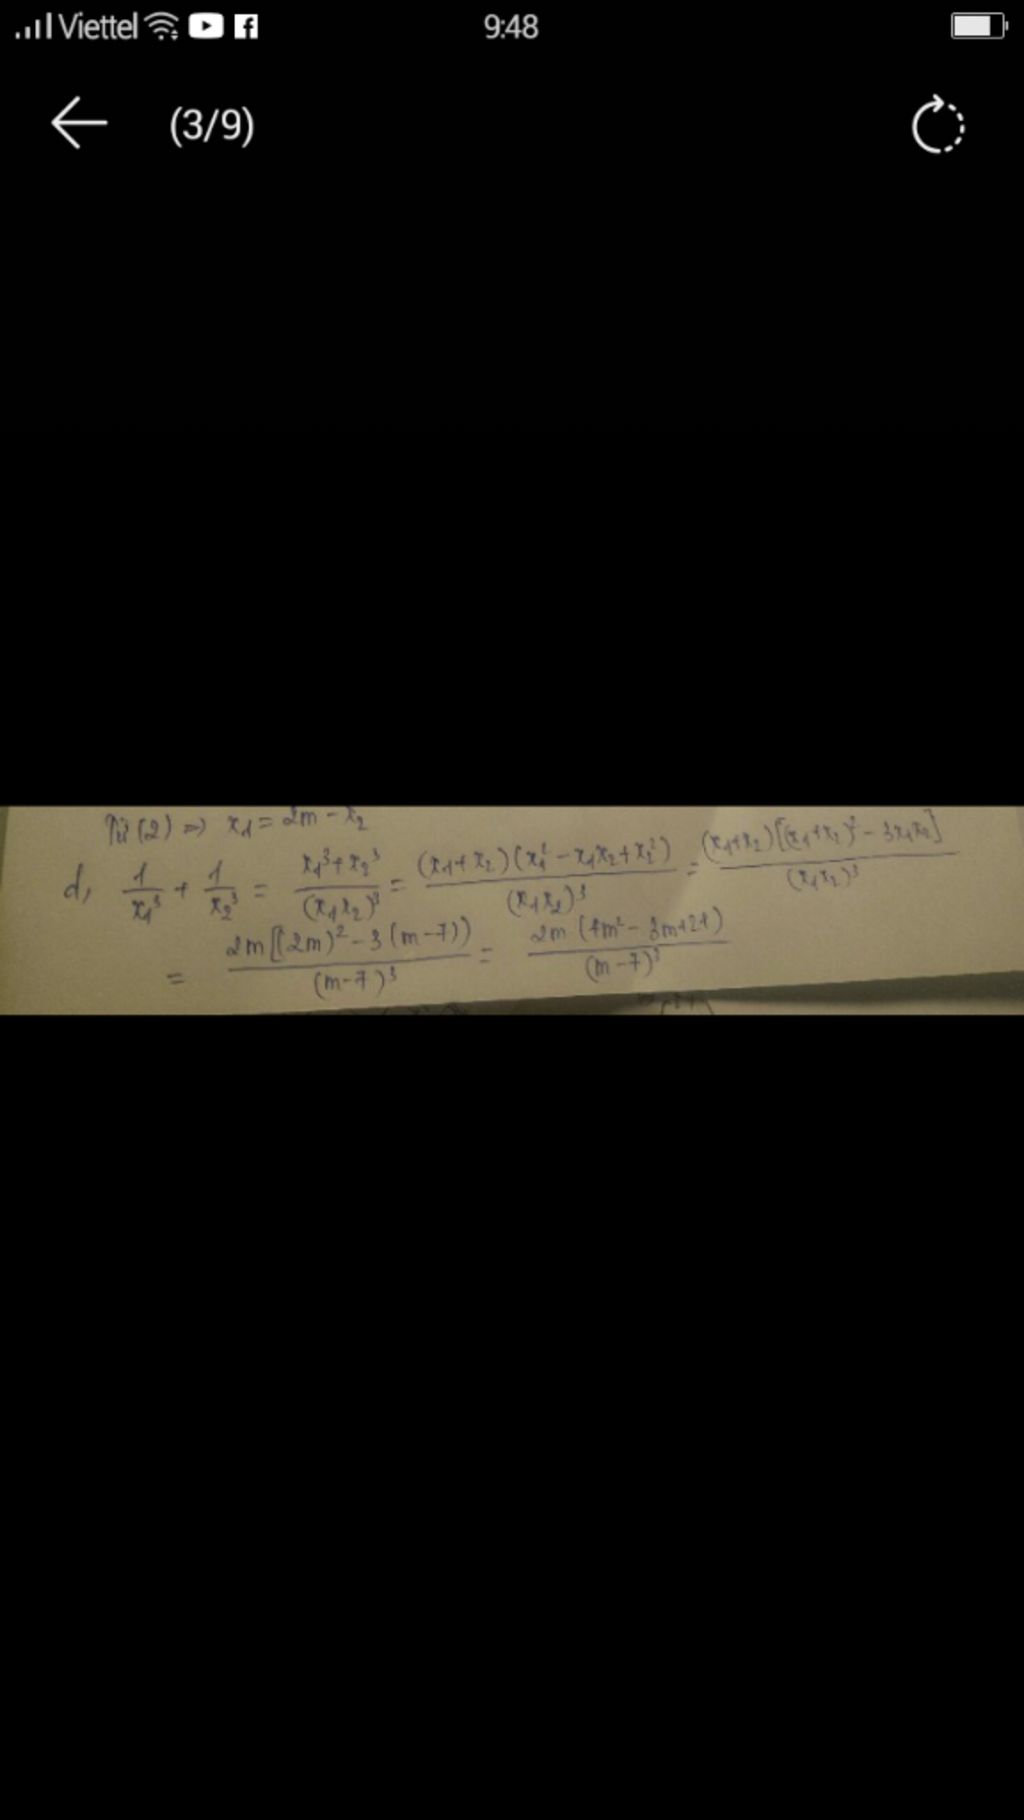 Viettel 9:48
(3/9)
Từ (2) => x₁ = 2m - x₂
d, 1/x₁³ + 1/x₂³ = (x₁³ + x₂³)/(x₁x₂)³ = (x₁ + x₂)(x₁² - x₁x₂ + x₂²)/(x₁x₂)³ = (x₁+x₂)[(x₁+x₂)² - 3x₁x₂]/(x₁x₂)³
= 2m[(2m)² - 3(m-7))/(m-7)³ = 2m(4m² - 3m+21)/(m-7)³